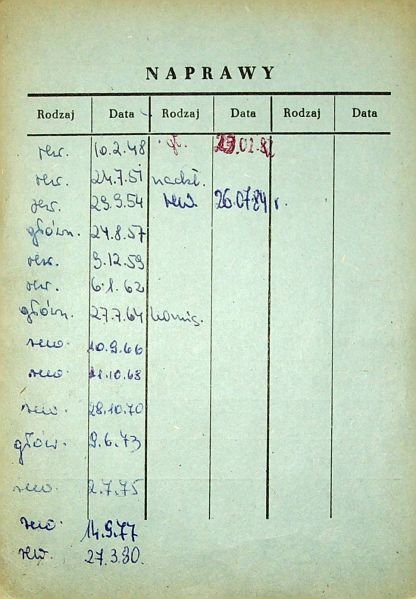 NAPRAWY
Rodzaj Data Rodzaj Data Rodzaj Data
rew. 10.2.48 gł. 23.02.82
rew. 24.7.51 nadzł.
rew. 29.9.54 rew. 26.07.84 r.
główn. 24.8.57
rew. 9.12.59
rew. 6.1.62
główn. 27.7.64 komis.
rew. 10.9.66
rew. 11.10.68
rew. 28.10.70
głów. 9.6.73
rew. 2.7.75
rew. 14.9.77
rew. 27.3.80.